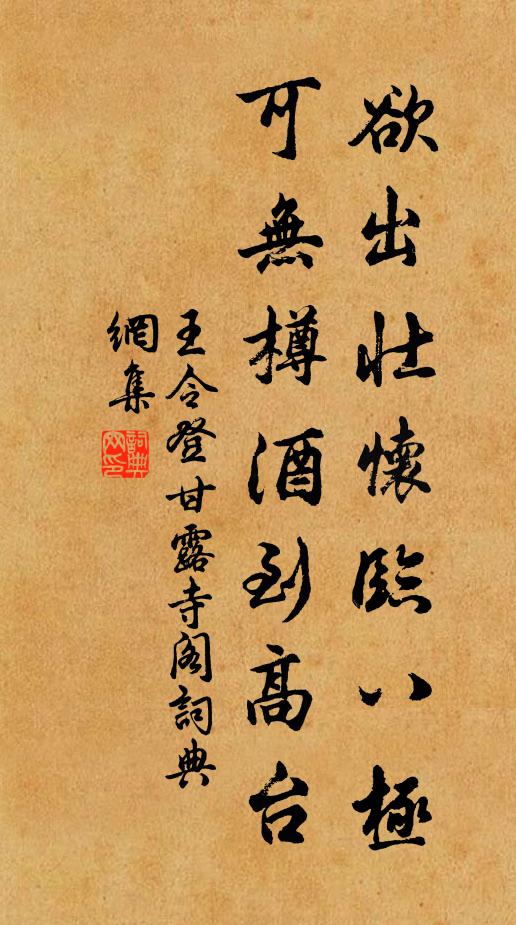 欲出壯懷臨八極
可無樽酒到高台
王令登甘露寺閣詞典
網集
詞典
网印